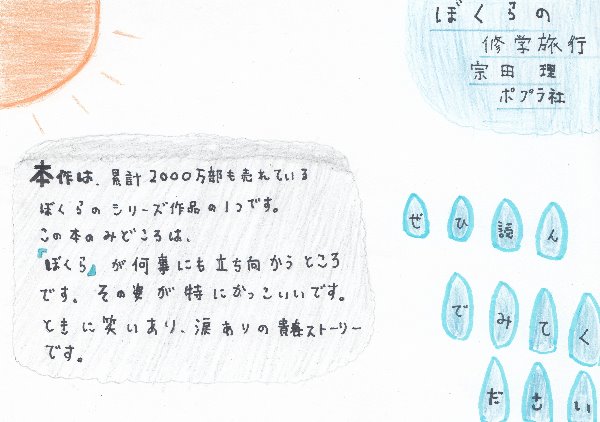 ぼくらの
修学旅行
宗田 理
ポプラ社
本作は、累計2000万部も売れている
ぼくらのシリーズ作品の1つです。
この本のみどころは、
『ぼくら』が何事にも立ち向かうところ
です。その姿が特にかっこいいです。
ときに笑いあり、涙ありの青春ストーリー
です。
ぜひ読ん
でみてく
ださい